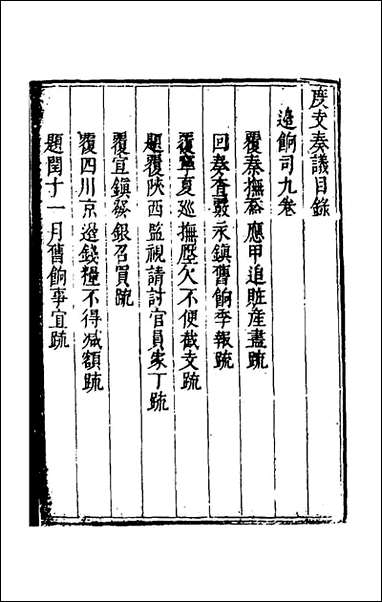 度支奏議目錄
邊餉司九卷
覆秦撫參應甲追贓產盡疏
回奏查覈永鎮舊餉季報疏
覆寧夏巡撫歷欠不便截支疏
題覆陝西監視請討官員家丁疏
覆宣鎮發銀召買疏
覆四川京邊錢糧不得减額疏
題閏十一月舊餉事宜疏